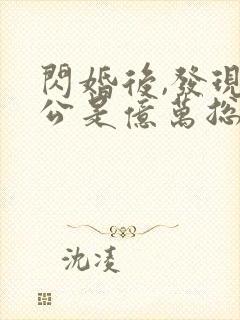 閃婚後,發現
公是億萬總
沈凌